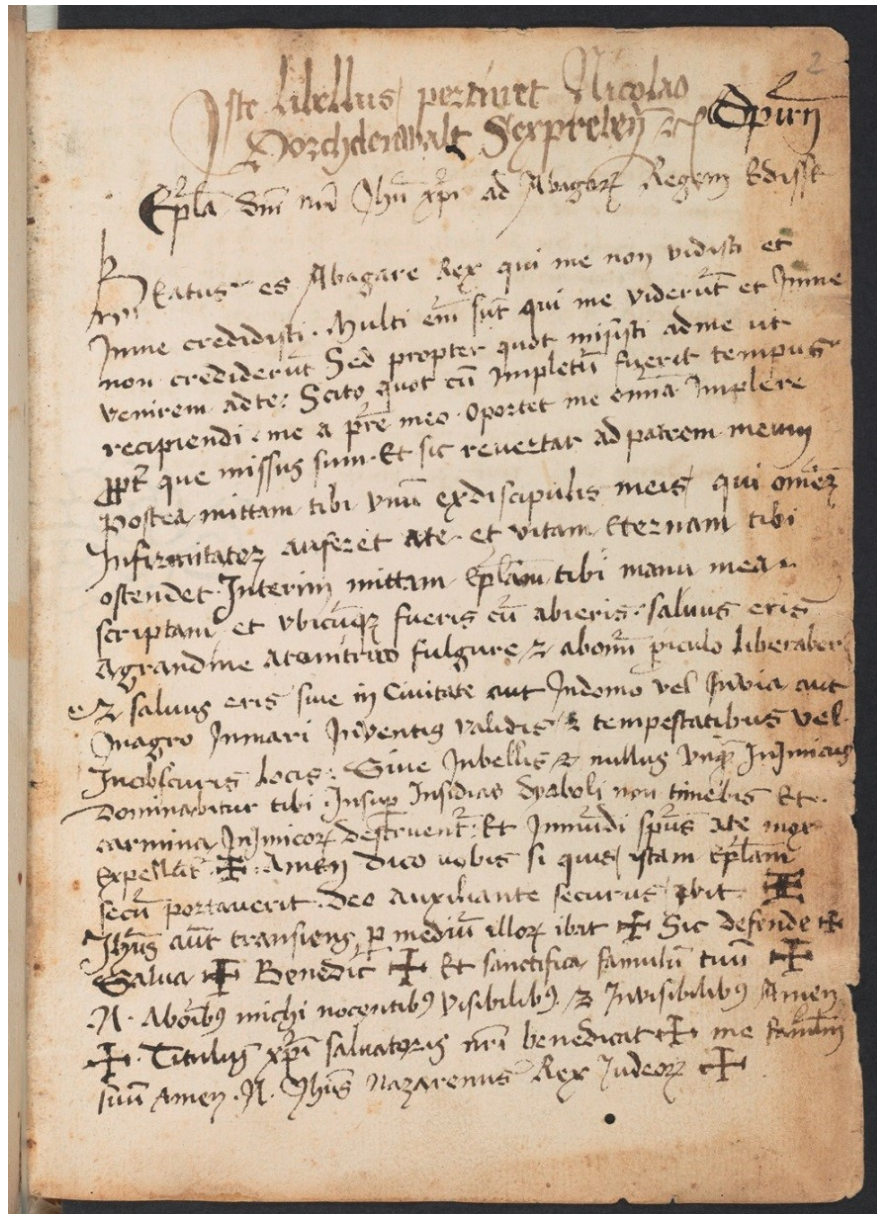 2
Iste libellus pertinet Nicolao
Dorchdenwalt Sexprebeñ
Ep̃la dñi nr̃i Jhũ xp̃i ad Abagarꝝ Regem Edisse
Beatus es Abagare Rex qui me non vidisti et
Inme credidisti · Multi em̃ sũt qui me viderũt et Inme
non crediderũt Sed propter quot misisti adme ut
venirem adte: Scito quot cũ Impletũ fuerit tempus
recipiendi · me a pr̃e meo · Oportet me om̃ia Implere
ꝓpt̃ que missus sum · Et sic revertar ad patrem meum
postea mittam tibi vnũ exdiscipulis meis qui om̃eʒ
Infirmitateʒ auferet ate · et vitam Eternam tibi
ostendet · Interim mittam Ep̃lam tibi manu mea
scriptam et vbicũqʒ fueris cũ abieris · salvus eris
Agrandine atonitruo fulgure ⁊ abom̃i piculo liberaber
⁊ salvus eris siue in Civitate aut Indomo vel Invia aut
Inagro Inmari Inventis validis ⁊ tempestatibus vel ·
Inobscuris Locis: Siue Inbellis ⁊ nullus vnꝙ̃ Inimicus
Dominabitur tibi · Insuꝑ Insidias dyaboli non timebis Et ·
carmina Inimicoꝝ destruent᷑: Et Inmũdi sp̃us ate mox
Expellãt᷑ ✠ · Amen Dico vobis si quis istam Ep̃lam
secũ portaverit · Deo Auxiliante securus ibit: ✠
Jhũs aũt transiens ꝑ mediũ illoꝝ ibat ✠ Sic defende ✠
Salva ✠ Benedic̃ ✠ Et sanctifica famulũ tuũ ✠
·N· Abõibꝰ michi nocentibꝰ visibilibꝰ ⁊ Invisibilibꝰ Amen
✠ · Titulus xp̃i salvatoris nr̃i benedicat ✠ me famũlũ
suũ Amen ·N· Jhũs Nazarenus Rex Iudeoꝝ ✠